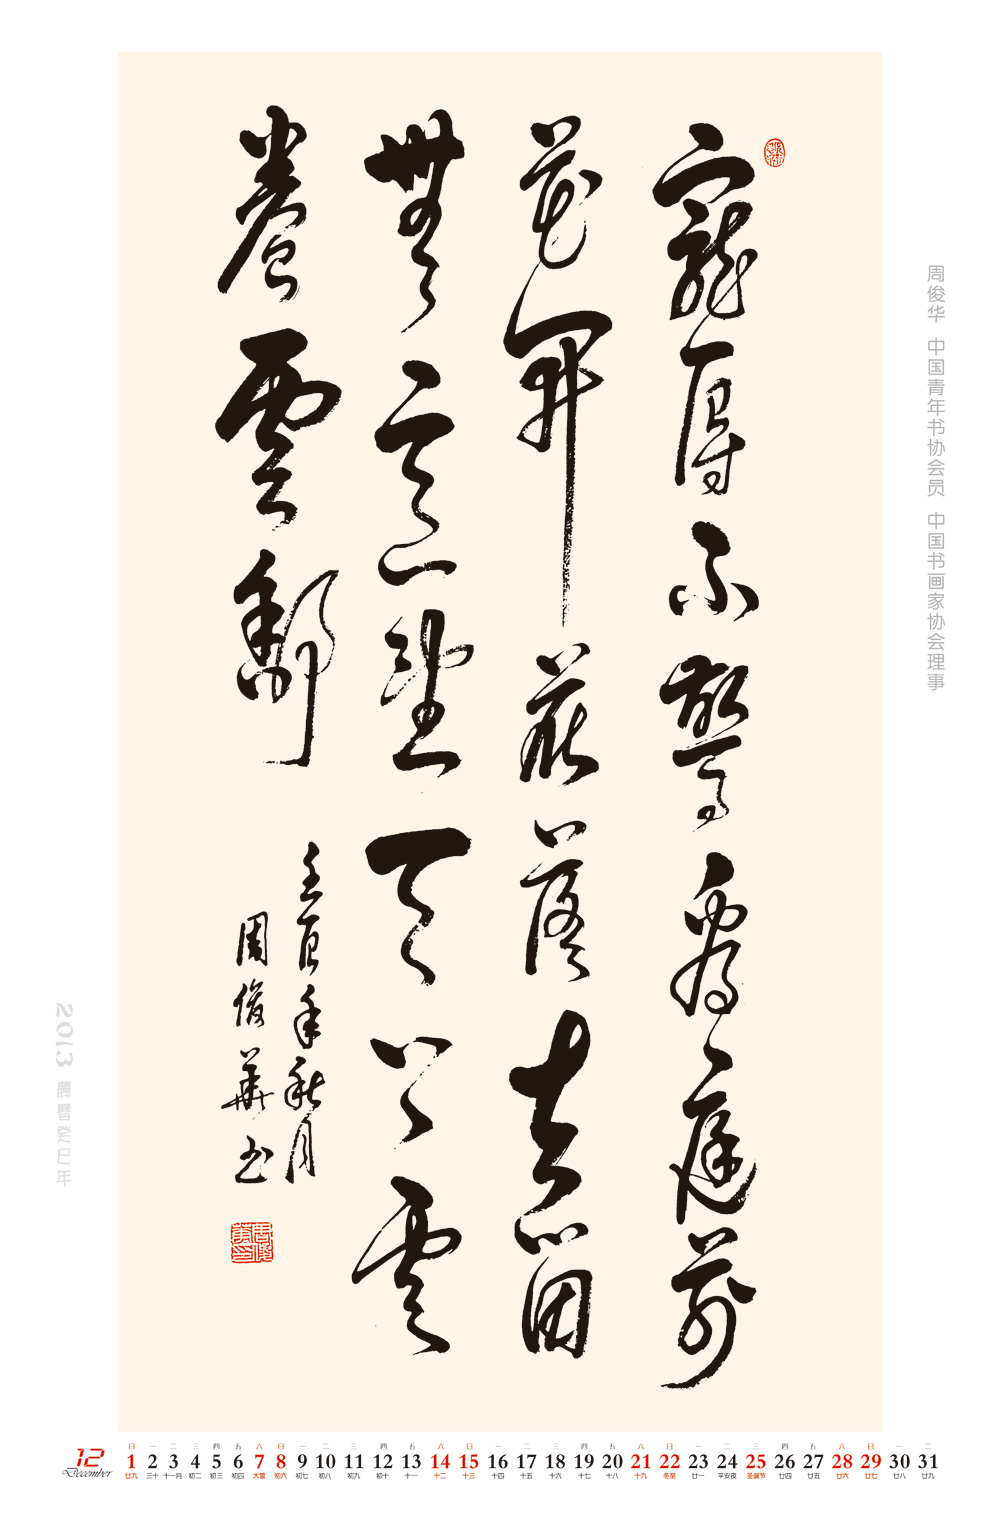 寵辱不驚看庭前
花開花落去留
無意望天雲
卷雲舒
壬辰年秋月
周俊華书
周俊华 中国青年书协会员 中国书画家协会理事
2013 農曆癸巳年
12 December
日 一 二 三 四 五 六 日 一 二 三 四 五 六 日 一 二 三 四 五 六 日 一 二 三 四 五 六 日 一 二
1 2 3 4 5 6 7 8 9 10 11 12 13 14 15 16 17 18 19 20 21 22 23 24 25 26 27 28 29 30 31
廿九 三十 十一月 初二 初三 初四 大雪 初六 初七 初八 初九 初十 十一 十二 十三 十四 十五 十六 十七 十八 十九 冬至 廿一 平安夜 圣诞节 廿四 廿五 廿六 廿七 廿八 廿九